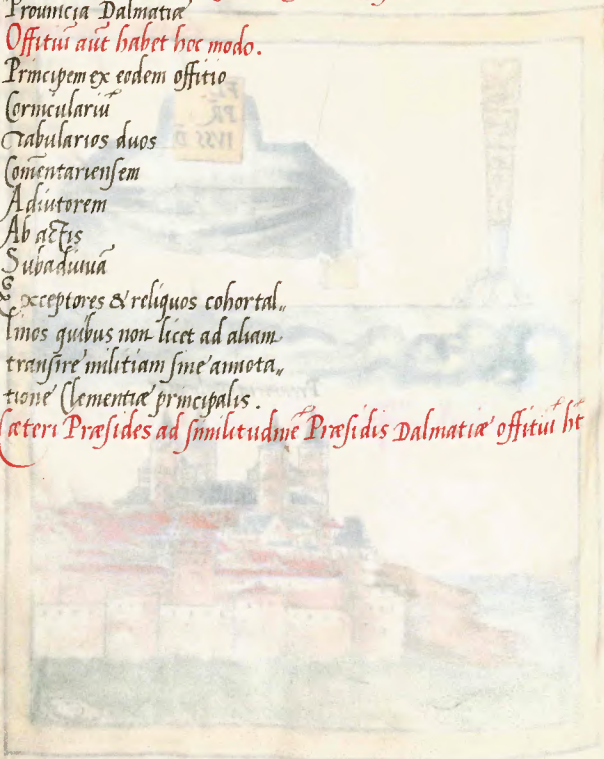 Prouincia Dalmatiæ
Offitiũ aũt habet hoc modo.
Principem ex eodem offitio
Corniculariũ
Tabularios duos
Com̃entariensem
Adiutorem
Ab actis
Subadiuuã
Exceptores & reliquos cohortal„
linos quibus non licet ad aliam
transire militiam sine annota„
tione Clementiæ principalis.
Cæteri Præsides ad similitudinẽ Præsidis Dalmatiæ offitiũ hñt